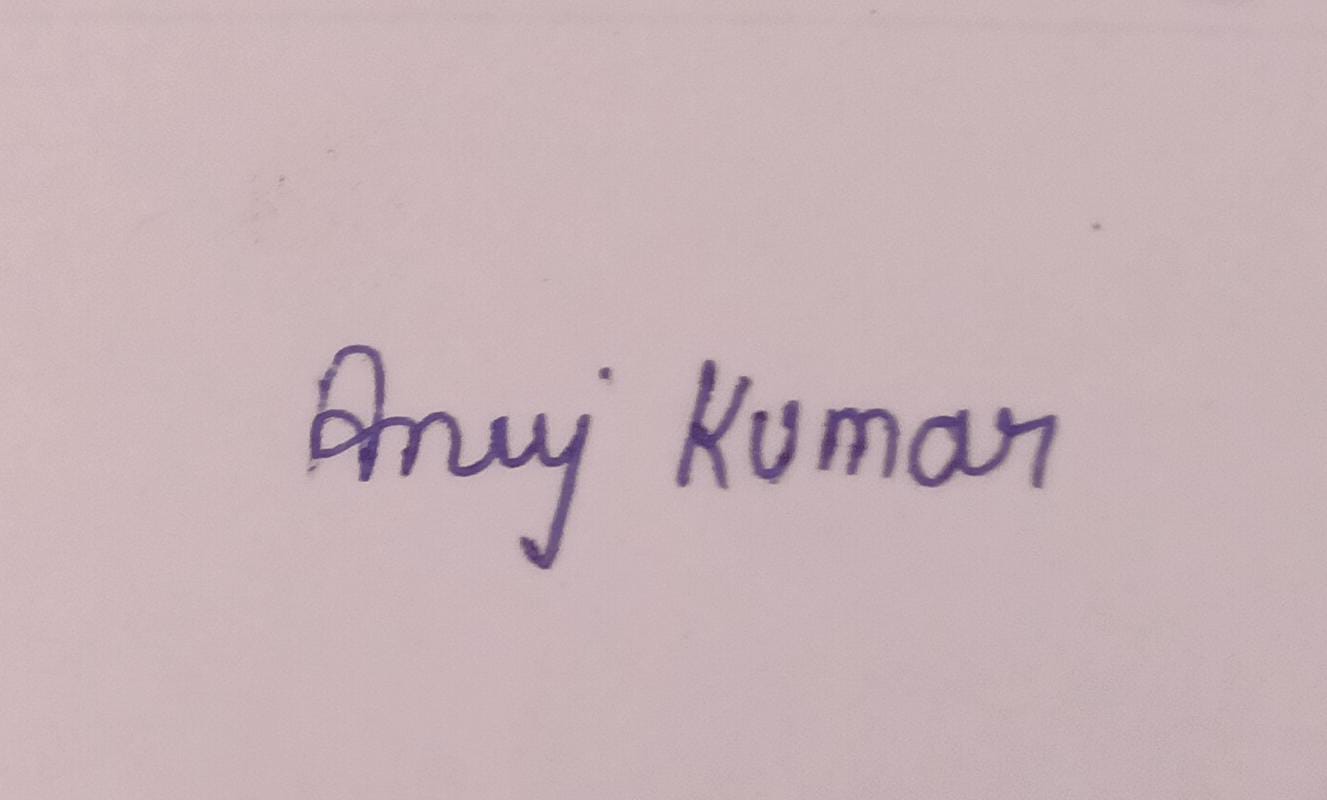 Anuj Kumar